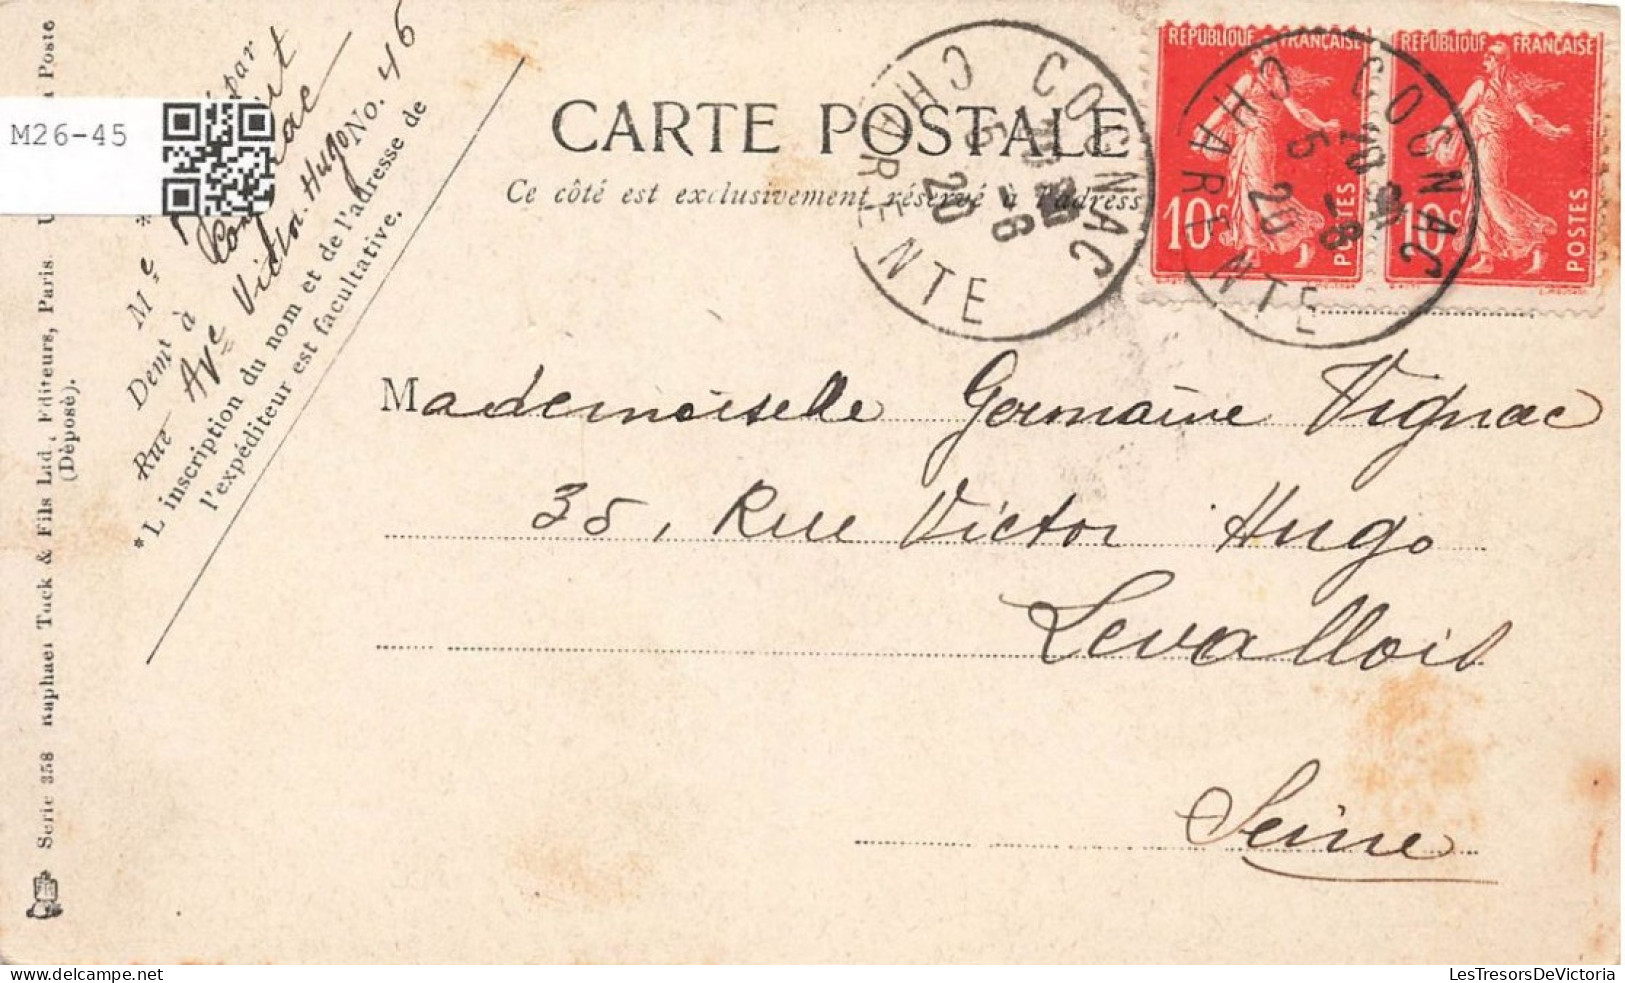 CARTE POSTALE
Ce côté est exclusivement réservé à l'adress
REPUBLIQUE FRANÇAISE
10c POSTES
REPUBLIQUE FRANÇAISE
10c POSTES
COGNAC
5 -8
20
CHARENTE
COGNAC
5 -8
20
CHARENTE
Mademoiselle Germaine Vignac
35, Rue Victor Hugo
Levallois
Seine
M26-45
par
* Me
Demt à
Rue Ave Victor Hugo No. 46
* L'inscription du nom et de l'adresse de
l'expéditeur est facultative.
Serie 358 Raphael Tuck & Fils Ltd, Editeurs, Paris. Poste
(Déposé).
LesTresorsDeVictoria